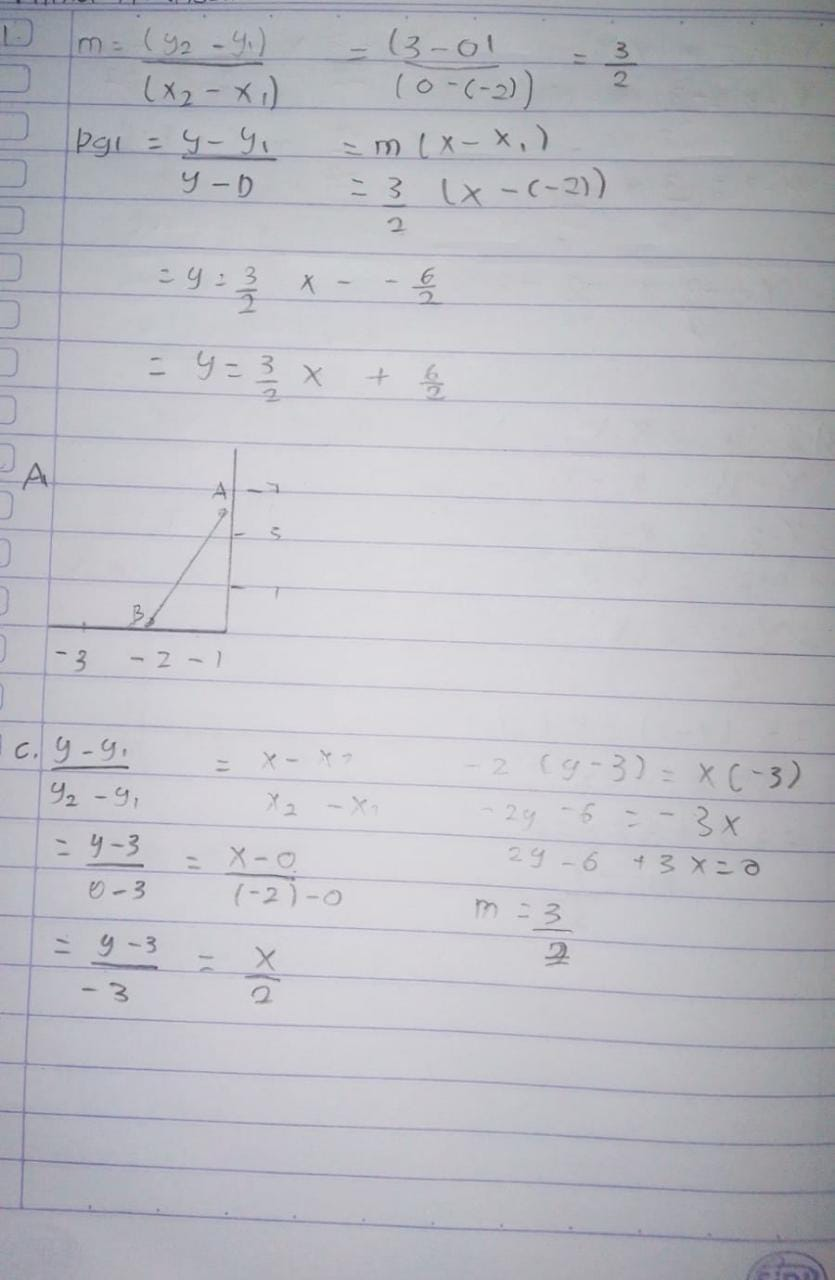 1. m = (y₂ - y₁) / (x₂ - x₁) = (3 - 0) / (0 - (-2)) = 3/2
pgl = y - y₁ = m (x - x₁)
y - 0 = 3/2 (x - (-2))
= y = 3/2 x - - 6/2
= y = 3/2 x + 6/2
A
A - 7
- 5
- 1
B
-3 -2 -1
c. (y - y₁) / (y₂ - y₁) = (x - x₁) / (x₂ - x₁)
= (y - 3) / (0 - 3) = (x - 0) / ((-2) - 0)
= (y - 3) / (-3) = x / 2
-2 (y - 3) = x (-3)
-2y - 6 = - 3x
2y - 6 + 3x = 0
m = 3/2